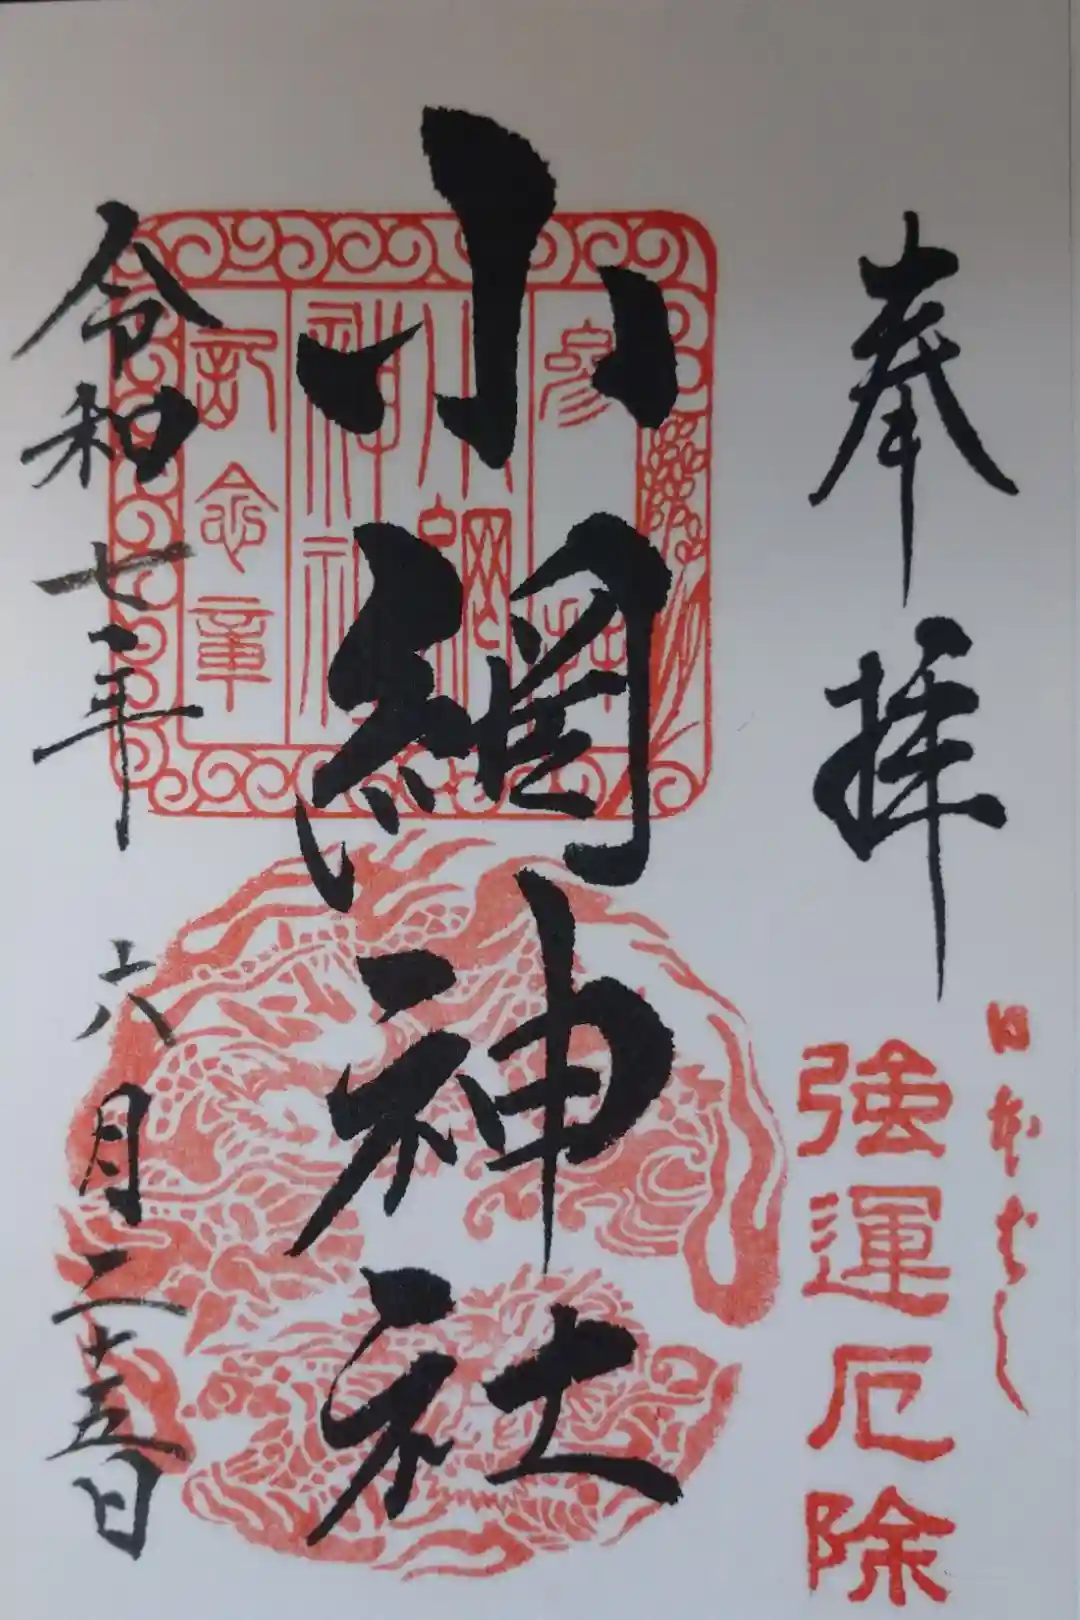 奉拝
日本ばし
強運厄除
小網神社
参拝
小網
神社
記念章
令和七年六月二十五日